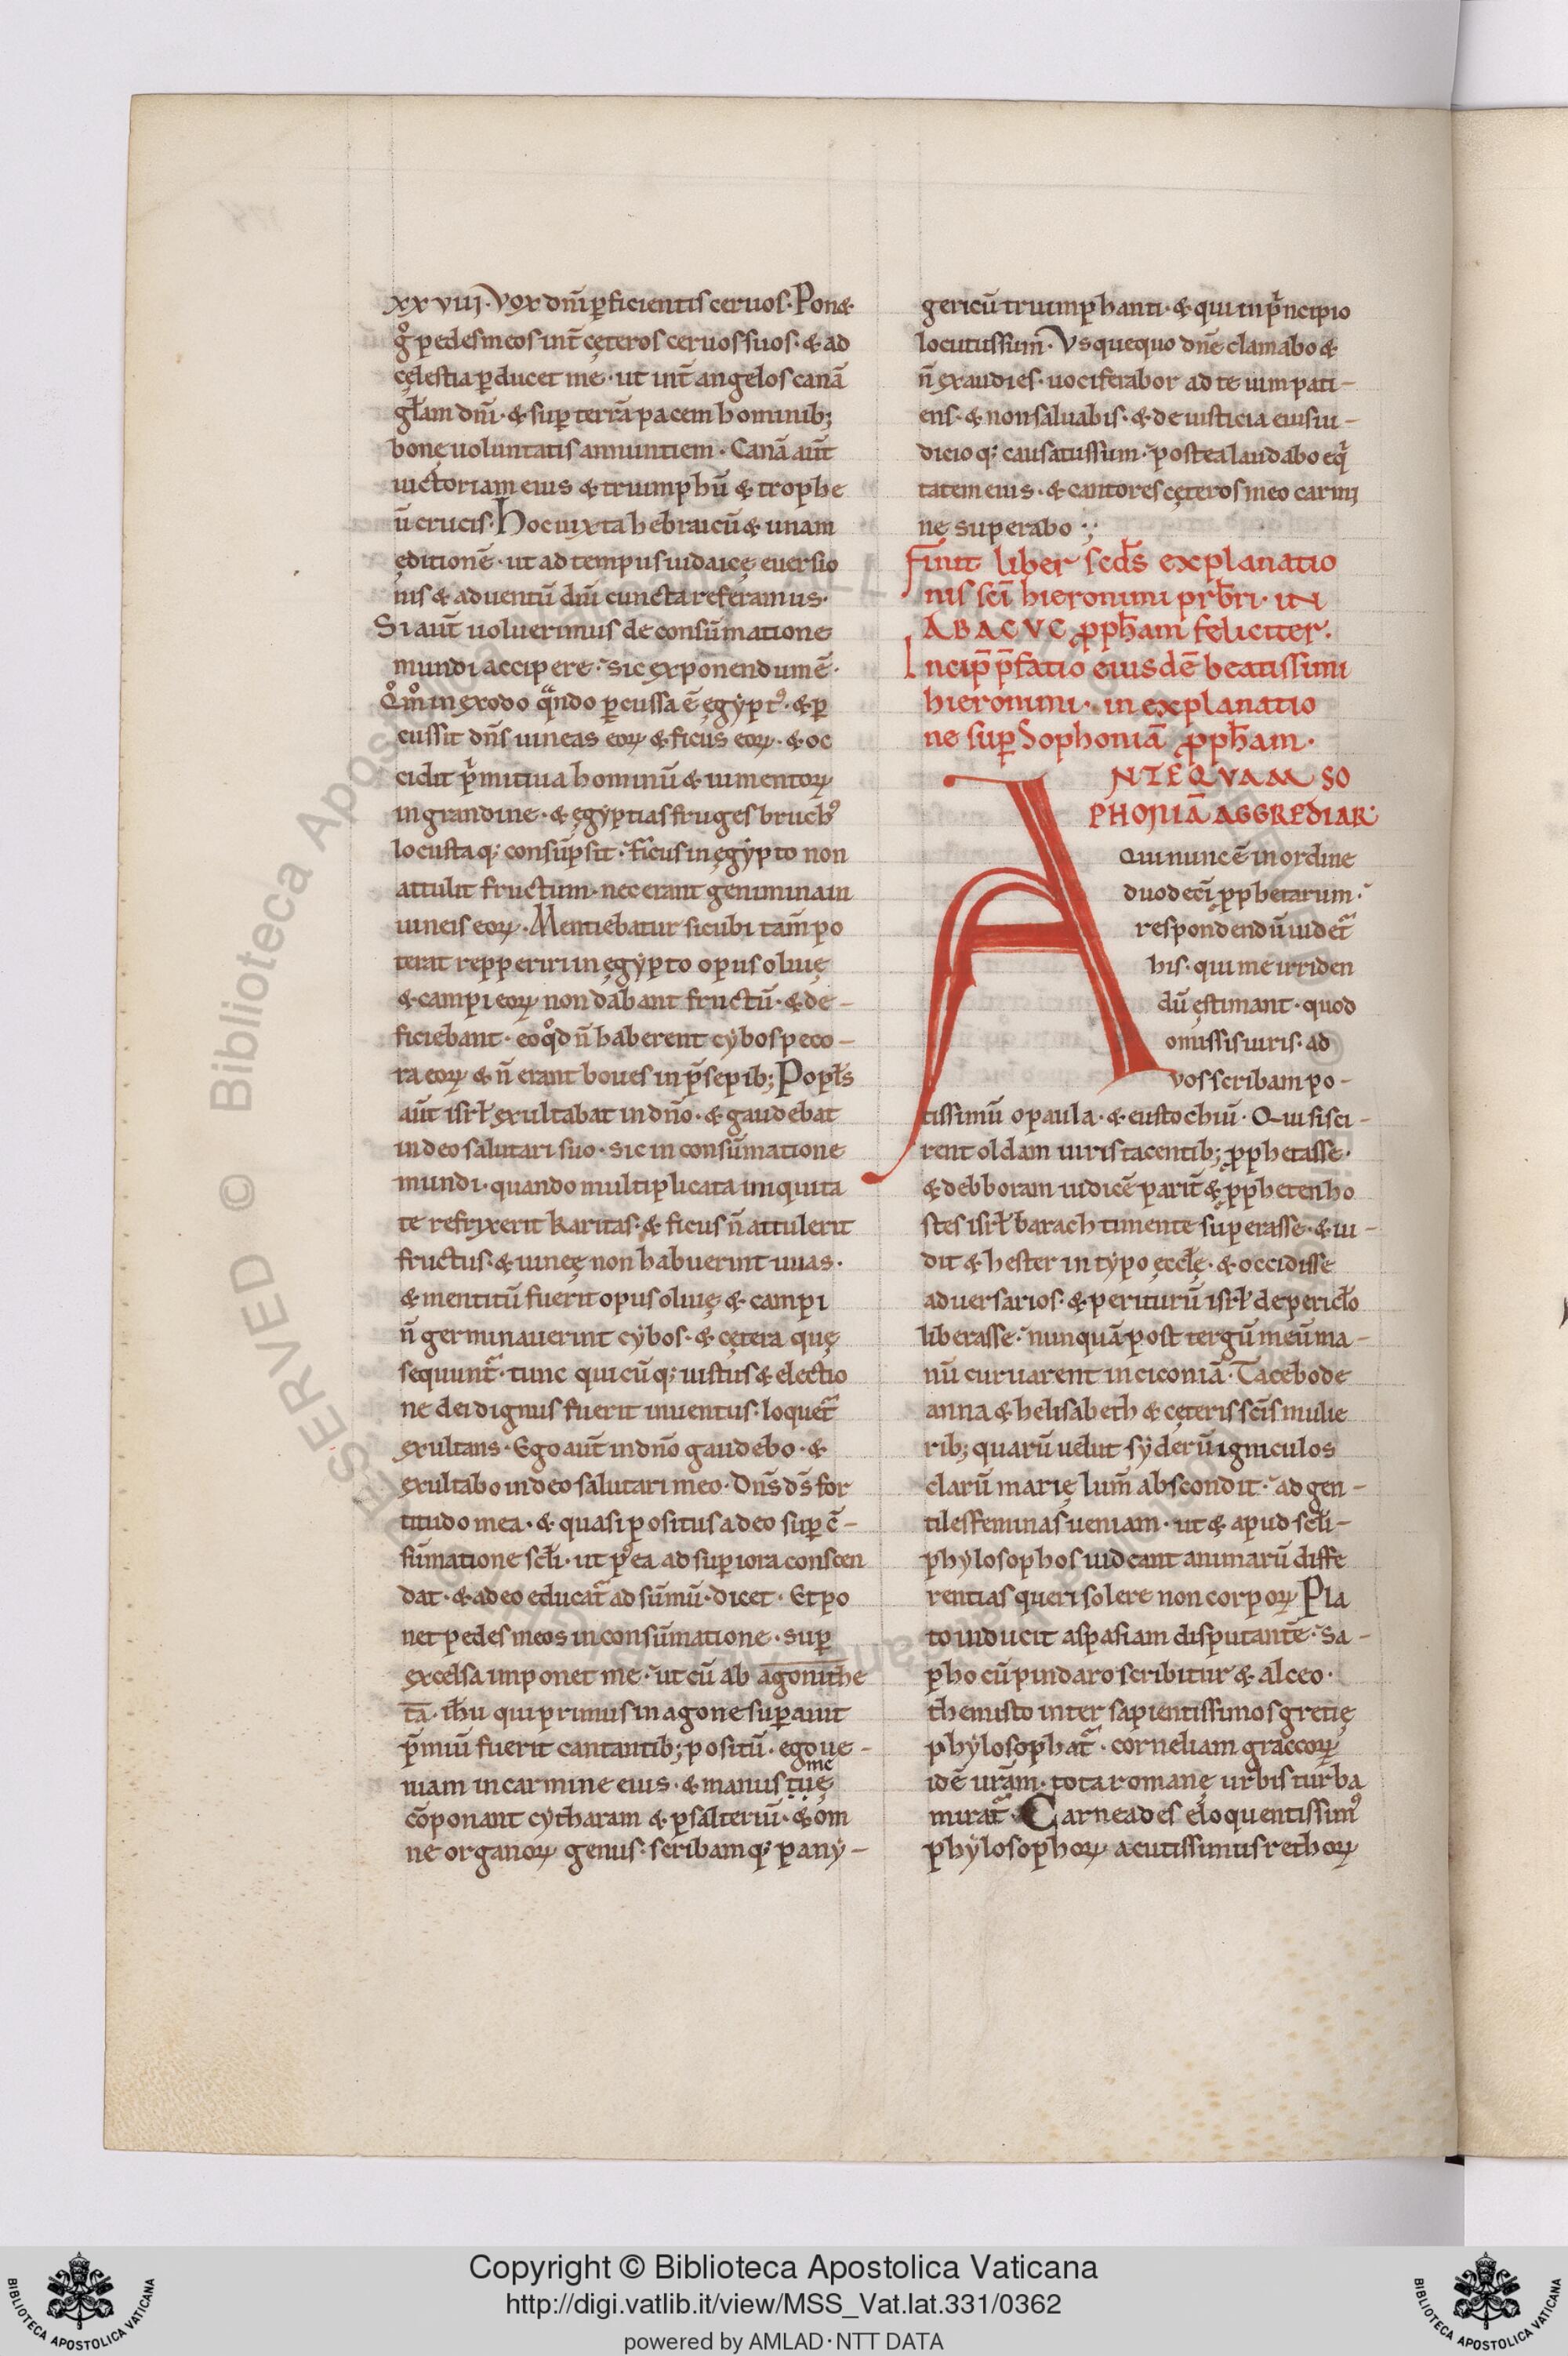 xxviij. Vox dn̄i p̄ficientis ceruos. Pon&
g° pedes meos int̄ cęteros ceruos suos. & ad
cęlestia p̱ducet me. ut int̄ angelos canā
gl̄am dn̄i. & sup̱ terrā pacem hominib;
bonę uoluntatis annuntiem. Canā aut̄
uictoriam eius & triumphū & trophe
ū crucis. Hoc iuxta hebraicū & unam
ęditionē. ut ad tempus iudaicę euersio
nis & aduentū diū cuncta referamus.
Si aut̄ uoluerimus de consūmatione
mundi accipere. sic exponendum ē.
Qm̊ in exodo qᵃndo p̱cussa ē ęgypt᾿. & p̱
cussit dn̄s uineas eoꝝ & ficus eoꝝ. & oc
cidit pⁱmitiua hominū & iumentoꝝ
in grandine. & ęgyptias fruges bruch᾿
locustaq; consūpsit. ficus in ęgypto non
attulit fructum. nec erant genimina in
uineis eoꝝ. Mentiebatur sicubi tam̄ po
terat repperiri in ęgypto opus oliuę
& campi eoꝝ non dabant fructū. & de-
ficiebant. eo qd̊ n̄ haberent cybos peco-
ra eoꝝ & n̄ erant boues in p̄sepib; Popl̄s
aut̄ isrl̄ exultabat in dn̄o. & gaudebat
in deo salutari suo. sic in consūmatione
mundi. quando multiplicata iniquita
te refrixerit karitas. & ficus n̄ attulerit
fructus. & uineę non habuerint uuas.
& mentitū fuerit opus oliuę & campi
n̄ germinauerint cybos. & cętera quę
sequunt᷑. tunc quicūq; iustus & electio
ne dei dignus fuerit inuentus. loquet᷑
exultans. Ego aut̄ in dn̄o gaudebo. &
exultabo in deo salutari meo. Dn̄s ds̄ for
titudo mea. & quasi positus a deo sup̱ c̄-
sūmatione scl̄i. ut p᾿ea ad sup̱iora conscen
dat. & a deo educat᷑ ad sūmū. dicet. Et po
net pedes meos in consūmatione. sup̱
excelsa imponet me. ut cū ab agonithe
ta. ih̄u qui primus in agone sup̱auit
p̄miū fuerit cantantib; positū. ego ue-
niam in carmine eius. & manus tuę me
cōponant cytharam & psalteriū. & om
ne organoꝝ genus. scribamq; pany-
gericū triumphanti. & qui in pⁱncipio
locutus sum. Vsquequo dn̄e clamabo &
n̄ exaudies. uociferabor ad te uim pati-
ens. & non saluabis. & de iusticia eius iu-
dicioq; causatus sum. postea laudabo eqⁱ
tatem eius. & cantores cęteros meo carmi
ne superabo :;
Finit liber scd̄s explanatio
nis sc̄i hieronimi prb̄ri. IN
ABACVC ꝓph̄am feliciter.
Incip̄ p̄fatio eiusdē beatissimi
hieronimi. in explanatio
ne sup̱ Sophoniā ꝓph̄am.
ANTEQVAM SO
PHONIĀ AGGREDIAR
Qui nunc ē in ordine
duodeci ꝓphetarum.
respondendū uidet᷑
his. qui me irriden
dū ęstimant. quod
omissis uiris. ad
vos scribam po-
tissimū o paula. & eustochiū. Qui si sci-
rent oldam uiris tacentib; ꝓphetasse.
& debboram iudicē parit̄ & ꝓpheten ho
stes isrl̄ barach timente superasse. & iu-
dit & hester in typo ęccl̄ę. & occidisse
aduersarios. & periturū isrl̄ de pericl̄o
liberasse. nunquā post tergū meū ma-
nū curuarent in ciconiā. Tacebo de
anna & helisabeth & cęteris sc̄is mulie
rib; quarū uelut syderū igniculos
clarū marię lum̄ abscondit. ad gen-
tiles feminas ueniam. ut & apud scl̄i-
phylosophos uideant animarū diffe
rentias queri solere non corpoꝝ Pla
to inducit aspasiam disputantē. Sa-
pho cū pindaro scribitur & alceo.
themisto inter sapientissimos gretię
phylosophat᷑. corneliam graccoꝝ
idē urām. tota romanę urbis turba
mirat᷑. Carneades eloquentissim᾿
phylosophoꝝ acutissimus rethoꝝ
© Biblioteca Apostolica Vaticana
Copyright © Biblioteca Apostolica Vaticana
http://digi.vatlib.it/view/MSS_Vat.lat.331/0362
powered by AMLAD·NTT DATA
BIBLIOTECA APOSTOLICA VATICANA
BIBLIOTECA APOSTOLICA VATICANA